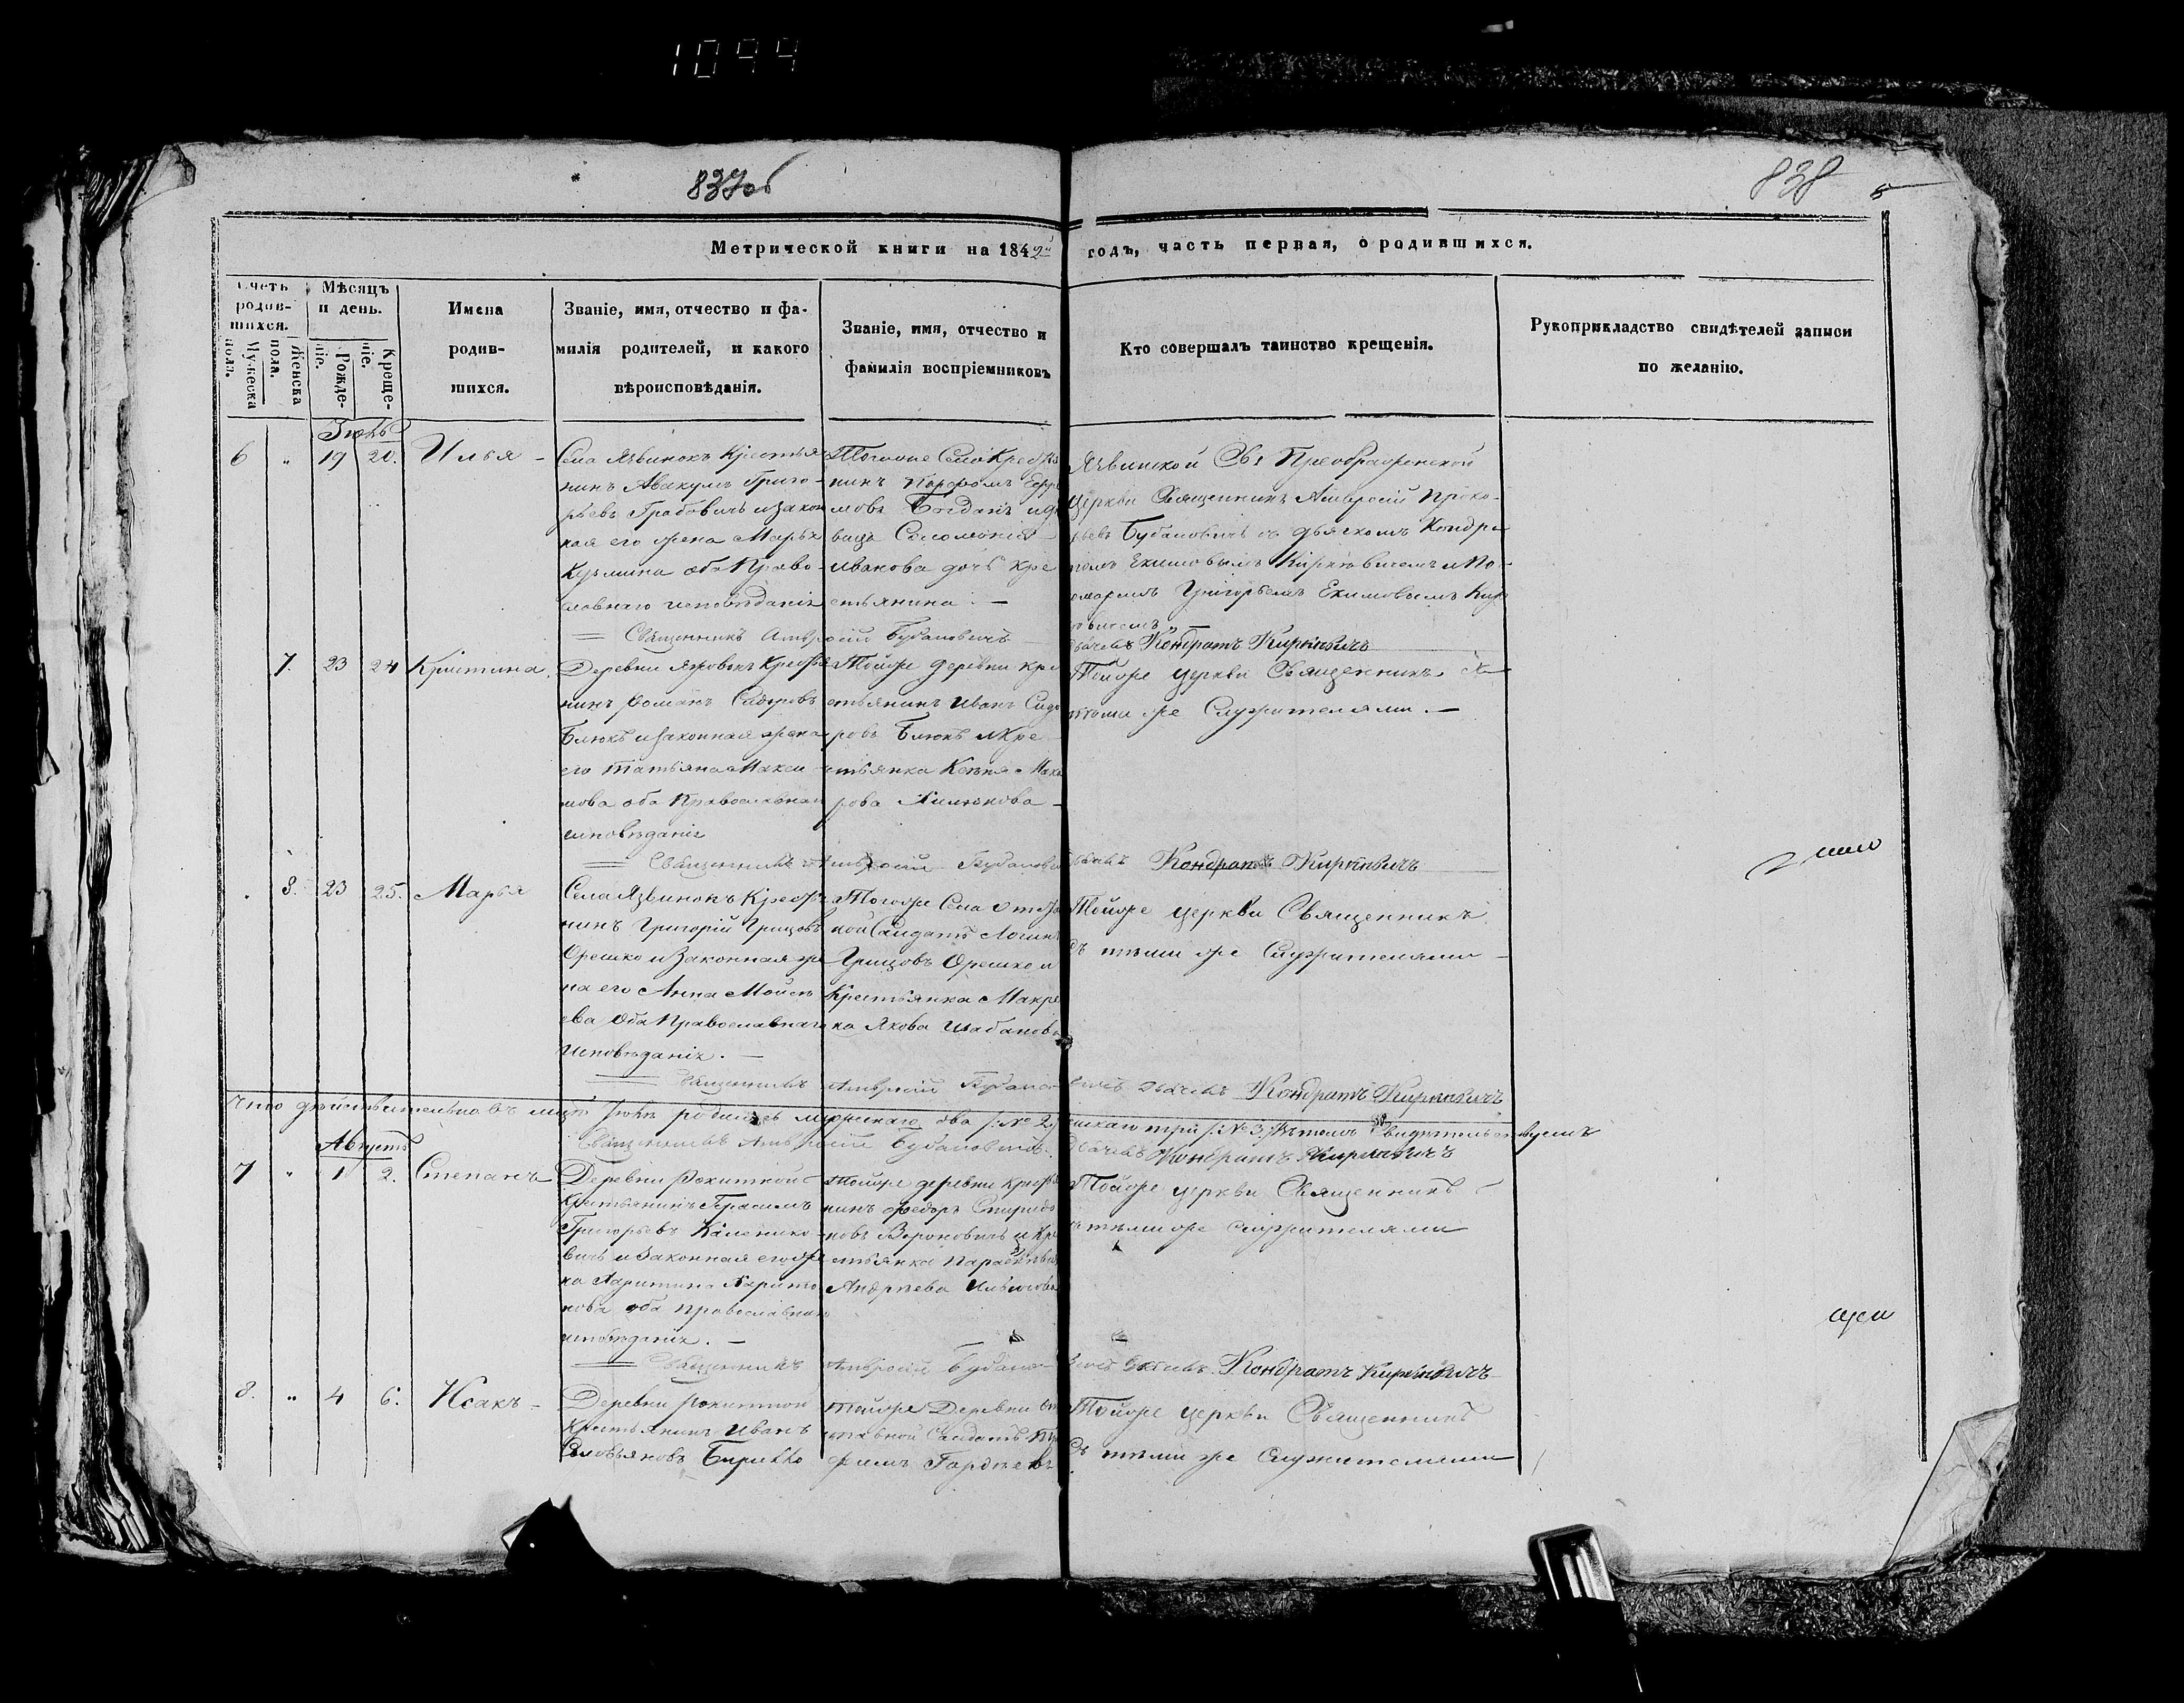 1044
837об
838
Метрической книги на 1842й годъ, часть первая, о родившихся.
Счетъ родив-шихся.
Мужеска пола.
Женска пола.
Мѣсяцъ и день.
Рожде-ніе.
Креще-ніе.
Имена родив-шихся.
Званіе, имя, отчество и фа-
милія родителей, и какого
вѣроисповѣданія.
Званіе, имя, отчество и
фамилія воспріемниковъ
Кто совершалъ таинство крещенія.
Рукоприкладство свидѣтелей записи
по желанію.
Іюль
6 " 19 20. Илья -
Села Язвинокъ Крестья
нинъ Авакумъ Григо-
рьевъ Грабовичъ и закон
ная его жена Марья
Кузмина оба Право-
славнаго исповѣданія
Тогоже Села Крестья
нинъ
мовъ Богданъ и дѣ
вица Соломонія
Иванова дочь кре
стьянина. —
Язвинской Св: Преображенской
церкви Священникъ Амвросій Проко-
ьевъ Будзиловичъ съ дьячкомъ Кондра
томъ Екимовымъ Киркевичемъ и По-
омаремъ Григорьемъ Екимовымъ Кирк
евичемъ
Священникъ Амвросій
дьячекъ Кондратъ Киркевичъ
7. 23 24 Кристина.
Деревни Крестья
нинъ Романъ Сидоровъ
Блюкъ и законная жена
его Татьяна Макси
мова оба Православнаго
исповѣданія
Тойже деревни кре
стьянинъ Иванъ Сидо
ровъ Блюкъ и Кре
стьянка Мака
рова
Тойже церкви Священникъ съ
тѣми же Служителями. —
Священникъ Амвросій
дьячекъ Кондратъ Киркевичъ
8. 23 25. Марья
Села Язвинокъ Крестья
нинъ Григорій Грицовъ
Орешко и Законная же
на его Анна Моисе
ева Оба Православнаго
Исповѣданія. —
Тогоже Села Отстав
ной Салдатъ Логинъ
Грицовъ Орешко и
Крестьянка Макре
на Якова Шабанова
Тойже церкви Священникъ
съ тѣми же Служителями —
Священникъ Амвросій
дьячекъ Кондратъ Киркевичъ
Что дѣйствительно въ м-цѣ Іюлѣ родилось мужескаго два /: № 2 /: женскаго три /: № 3 /: въ томъ Свидетельствуемъ
Священникъ Амвросій
Дьячекъ Кондратъ Киркевичъ
Августъ
7 " 1 2. Степанъ
Деревни Рокитной
Крестьянинъ Герасимъ
Григорьевъ Каленико
вичъ и Законная его же
на Харито
нова оба Православнаго
исповѣданія. —
Тойже деревни крестья
нинъ Федоръ Спиридо
новъ Вороновичъ и Кре
стьянка Параскевія
Андреева
Тойже церкви Священникъ
съ тѣми же служителями
Священникъ Амвросій
дьячекъ Кондратъ Киркевичъ
8. " 4 6. Исакъ -
Деревни Рокитной
Крестьянинъ Иванъ
Тойже Деревни От
ставной Салдатъ
Гордѣевъ
Тойже церкви Священникъ
съ тѣми же Служителями